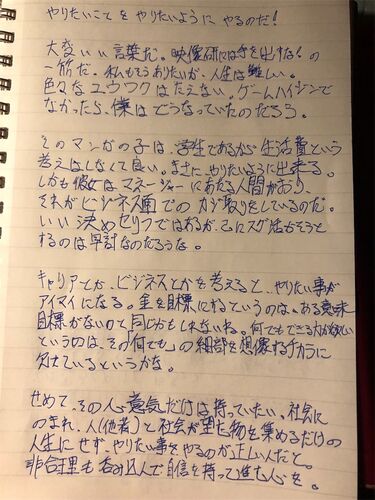 やりたいことをやりたいように やるのだ!
大変いい言葉だ。映像研には手を出すな!の
一節だ。私もそうありたいが、人生は難しい。
色々なユウワクはたえない。ゲームハイジンで
なかったら、僕はどうなっていたのだろう。
そのマンガの子は、学生であるから生活費という
考えはしなくて良い。まさに、やりたいように出来る。
しかも彼女はマネージャーにあたる人間がおり、
それがビジネス面でのカジ取りをしているのだ。
いい決めセリフではあるが、己にスグ活かそうと
するのは早計なのだろうな。
キャリアとか、ビジネスとかを考えると、やりたい事が
アイマイになる。金を目標にするというのは、ある意味
目標がないと同じかもしれないね。何でもできる力が欲しい
というのは、その「何でも」の細部を想像するチカラに
欠けているというかな。
せめて、その心意気だけは持っていたい。社会に
のまれ、人(他者)と社会が望む物を集めるだけの
人生にせず、やりたい事をやるのが正しいんだと。
非合理も呑み込んで自信を持って進む心を。